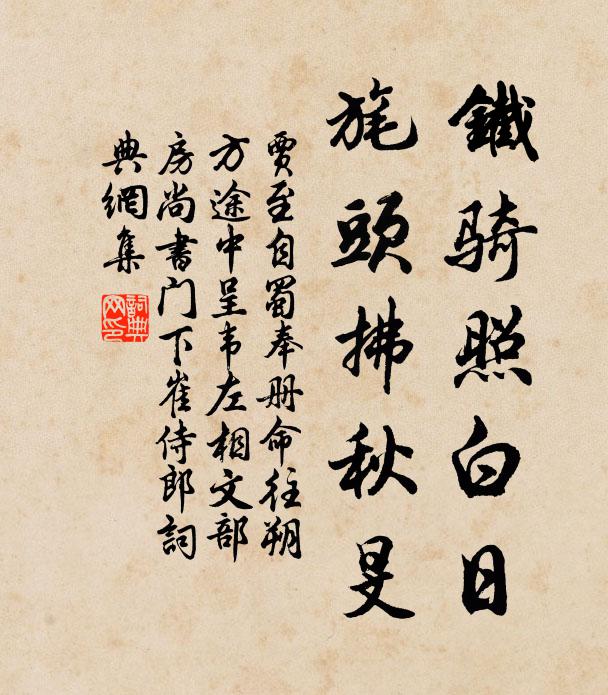 鐵骑照白日
旄頭拂秋旻
賈至自蜀奉册命往朔
方途中呈韦左相文部
房尚書门下崔侍郎詞
典網集
詞典网印